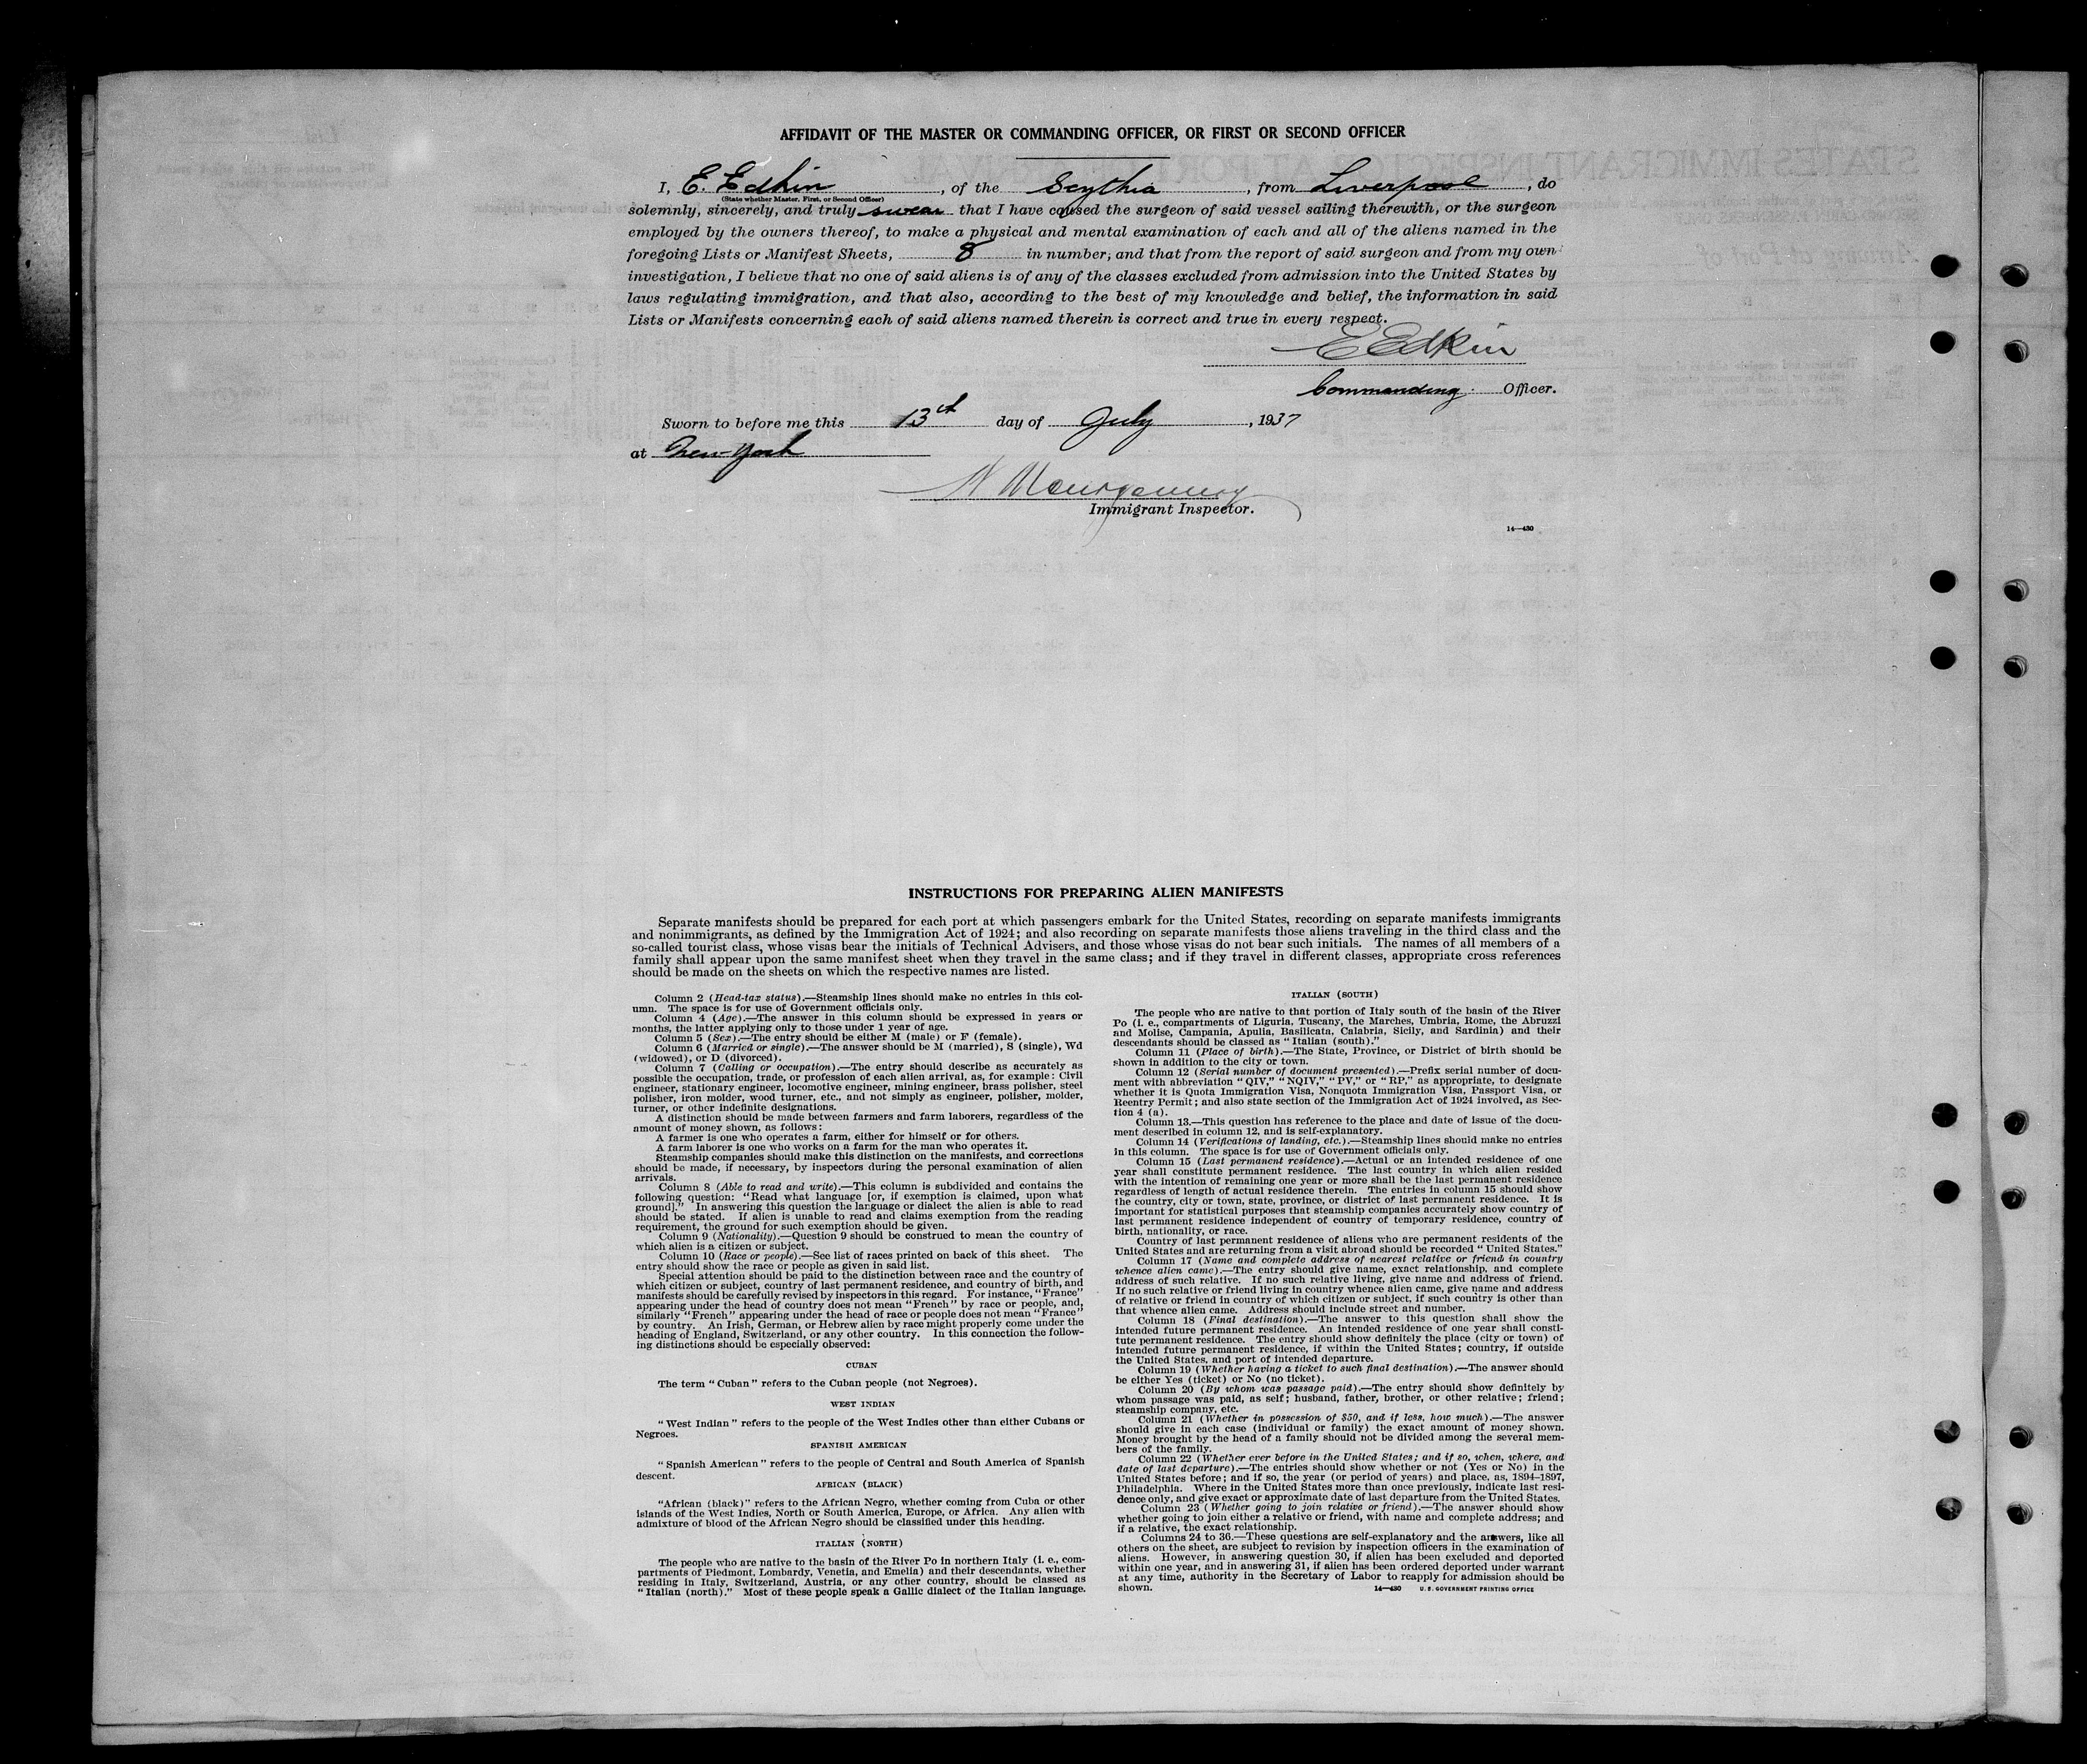 AFFIDAVIT OF THE MASTER OR COMMANDING OFFICER, OR FIRST OR SECOND OFFICER
I, E. Edkin, of the Scythia, from Liverpool, do
(State whether Master, First, or Second Officer)
solemnly, sincerely, and truly swear that I have caused the surgeon of said vessel sailing therewith, or the surgeon
employed by the owners thereof, to make a physical and mental examination of each and all of the aliens named in the
foregoing Lists or Manifest Sheets, 8 in number, and that from the report of said surgeon and from my own
investigation, I believe that no one of said aliens is of any of the classes excluded from admission into the United States by
laws regulating immigration, and that also, according to the best of my knowledge and belief, the information in said
Lists or Manifests concerning each of said aliens named therein is correct and true in every respect.
E Edkin
Commanding Officer.
Sworn to before me this 13th day of July, 1937
at New-York
Montgomery
Immigrant Inspector.
14—430
INSTRUCTIONS FOR PREPARING ALIEN MANIFESTS
Separate manifests should be prepared for each port at which passengers embark for the United States, recording on separate manifests immigrants
and nonimmigrants, as defined by the Immigration Act of 1924; and also recording on separate manifests those aliens traveling in the third class and the
so-called tourist class, whose visas bear the initials of Technical Advisers, and those whose visas do not bear such initials. The names of all members of a
family shall appear upon the same manifest sheet when they travel in the same class; and if they travel in different classes, appropriate cross references
should be made on the sheets on which the respective names are listed.
Column 2 (Head-tax status).—Steamship lines should make no entries in this col-
umn. The space is for use of Government officials only.
Column 4 (Age).—The answer in this column should be expressed in years or
months, the latter applying only to those under 1 year of age.
Column 5 (Sex).—The entry should be either M (male) or F (female).
Column 6 (Married or single).—The answer should be M (married), S (single), Wd
(widowed), or D (divorced).
Column 7 (Calling or occupation).—The entry should describe as accurately as
possible the occupation, trade, or profession of each alien arrival, as, for example: Civil
engineer, stationary engineer, locomotive engineer, mining engineer, brass polisher, steel
polisher, iron molder, wood turner, etc., and not simply as engineer, polisher, molder,
turner, or other indefinite designations.
A distinction should be made between farmers and farm laborers, regardless of the
amount of money shown, as follows:
A farmer is one who operates a farm, either for himself or for others.
A farm laborer is one who works on a farm for the man who operates it.
Steamship companies should make this distinction on the manifests, and corrections
should be made, if necessary, by inspectors during the personal examination of alien
arrivals.
Column 8 (Able to read and write).—This column is subdivided and contains the
following question: "Read what language [or, if exemption is claimed, upon what
ground]." In answering this question the language or dialect the alien is able to read
should be stated. If alien is unable to read and claims exemption from the reading
requirement, the ground for such exemption should be given.
Column 9 (Nationality).—Question 9 should be construed to mean the country of
which alien is a citizen or subject.
Column 10 (Race or people).—See list of races printed on back of this sheet. The
entry should show the race or people as given in said list.
Special attention should be paid to the distinction between race and the country of
which citizen or subject, country of last permanent residence, and country of birth, and
manifests should be carefully revised by inspectors in this regard. For instance, "France"
appearing under the head of country does not mean "French" by race or people, and,
similarly "French" appearing under the head of race or people does not mean "France"
by country. An Irish, German, or Hebrew alien by race might properly come under the
heading of England, Switzerland, or any other country. In this connection the follow-
ing distinctions should be especially observed:
CUBAN
The term "Cuban" refers to the Cuban people (not Negroes).
WEST INDIAN
"West Indian" refers to the people of the West Indies other than either Cubans or
Negroes.
SPANISH AMERICAN
"Spanish American" refers to the people of Central and South America of Spanish
descent.
AFRICAN (BLACK)
"African (black)" refers to the African Negro, whether coming from Cuba or other
islands of the West Indies, North or South America, Europe, or Africa. Any alien with
admixture of blood of the African Negro should be classified under this heading.
ITALIAN (NORTH)
The people who are native to the basin of the River Po in northern Italy (i. e., com-
partments of Piedmont, Lombardy, Venetia, and Emelia) and their descendants, whether
residing in Italy, Switzerland, Austria, or any other country, should be classed as
"Italian (north)." Most of these people speak a Gallic dialect of the Italian language.
ITALIAN (SOUTH)
The people who are native to that portion of Italy south of the basin of the River
Po (i. e., compartments of Liguria, Tuscany, the Marches, Umbria, Rome, the Abruzzi
and Molise, Campania, Apulia, Basilicata, Calabria, Sicily, and Sardinia) and their
descendants should be classed as "Italian (south)."
Column 11 (Place of birth).—The State, Province, or District of birth should be
shown in addition to the city or town.
Column 12 (Serial number of document presented).—Prefix serial number of docu-
ment with abbreviation "QIV," "NQIV," "PV," or "RP," as appropriate, to designate
whether it is Quota Immigration Visa, Nonquota Immigration Visa, Passport Visa, or
Reentry Permit; and also state section of the Immigration Act of 1924 involved, as Sec-
tion 4 (a).
Column 13.—This question has reference to the place and date of issue of the docu-
ment described in column 12, and is self-explanatory.
Column 14 (Verifications of landing, etc.).—Steamship lines should make no entries
in this column. The space is for use of Government officials only.
Column 15 (Last permanent residence).—Actual or an intended residence of one
year shall constitute permanent residence. The last country in which alien resided
with the intention of remaining one year or more shall be the last permanent residence
regardless of length of actual residence therein. The entries in column 15 should show
the country, city or town, state, province, or district of last permanent residence. It is
important for statistical purposes that steamship companies accurately show country of
last permanent residence independent of country of temporary residence, country of
birth, nationality, or race.
Country of last permanent residence of aliens who are permanent residents of the
United States and are returning from a visit abroad should be recorded "United States."
Column 17 (Name and complete address of nearest relative or friend in country
whence alien came).—The entry should give name, exact relationship, and complete
address of such relative. If no such relative living, give name and address of friend.
If no such relative or friend living in country whence alien came, give name and address
of relative or friend in country of which citizen or subject, if such country is other than
that whence alien came. Address should include street and number.
Column 18 (Final destination).—The answer to this question shall show the
intended future permanent residence. An intended residence of one year shall consti-
tute permanent residence. The entry should show definitely the place (city or town) of
intended future permanent residence, if within the United States; country, if outside
the United States, and port of intended departure.
Column 19 (Whether having a ticket to such final destination).—The answer should
be either Yes (ticket) or No (no ticket).
Column 20 (By whom was passage paid).—The entry should show definitely by
whom passage was paid, as self; husband, father, brother, or other relative; friend;
steamship company, etc.
Column 21 (Whether in possession of $50, and if less, how much).—The answer
should give in each case (individual or family) the exact amount of money shown.
Money brought by the head of a family should not be divided among the several mem-
bers of the family.
Column 22 (Whether ever before in the United States; and if so, when, where, and
date of last departure).—The entries should show whether or not (Yes or No) in the
United States before; and if so, the year (or period of years) and place, as, 1894–1897,
Philadelphia. Where in the United States more than once previously, indicate last resi-
dence only, and give exact or approximate date of last departure from the United States.
Column 23 (Whether going to join relative or friend).—The answer should show
whether going to join either a relative or friend, with name and complete address; and
if a relative, the exact relationship.
Columns 24 to 36.—These questions are self-explanatory and the answers, like all
others on the sheet, are subject to revision by inspection officers in the examination of
aliens. However, in answering question 30, if alien has been excluded and deported
within one year, and in answering 31, if alien has been ordered deported under warrant
at any time, authority in the Secretary of Labor to reapply for admission should be
shown.
14—430 U. S. GOVERNMENT PRINTING OFFICE